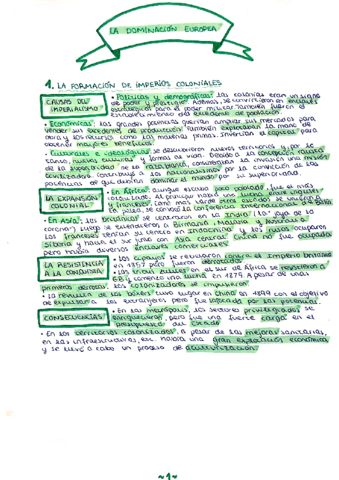 LA DOMINACIÓN EUROPEA
1. LA FORMACIÓN DE IMPERIOS COLONIALES
CAUSAS DEL IMPERIALISMO
• Políticas y demográficas: las colonias eran un signo
de poder y prestigio. Además, se convirtieron en enclaves
estratégicos para el poder militar. También fueron el
del excedente de población.
• Económicas: las grandes potencias querían ampliar sus mercados para
vender sus excedentes de producción. También explotaban la mano de
obra y los recursos como las materias primas. Invertían el capital para
obtener mayores beneficios.
• Culturales e ideológicas: se descubrieron nuevos territorios y por lo
tanto, nuevas culturas y formas de vida. Debido a la concepción racista
de la superioridad de la raza blanca, consideraban la invasión una misión
civilizadora. Contribuyó a los nacionalismos por la convicción de las
potencias de que debían dominar el mundo por su superioridad.
LA EXPANSIÓN COLONIAL
• En África: aunque estaba poco poblado, fue el más
conquistado. Al principio hubo una lucha entre ingleses
y franceses, pero más tarde otros países se unieron a
la pelea, se convocó la Conferencia Internacional de Berlín.
• En Asia: los británicos se centraron en la India (la "joya de la
corona"), luego se extendieron a Birmania, Malasia y Australia.
Los franceses tenían su centro en Indochina y los rusos ocuparon
Siberia y hacia el sur junto con Asia central. China no fue ocupada
pero había diversos enclaves comerciales.
LA RESISTENCIA A LA CONQUISTA
• Los cipayos se rebelaron contra el Imperio británico
en 1857 pero fueron derrotados.
• Las tribus zulúes en el sur de África se resistieron a
GB y comenzó una lucha en 1879. A pesar de unas
primeras derrotas, los colonizadores se impusieron.
• La revuelta de los bóxers tuvo lugar en China en 1899 con el objetivo
de expulsar a los extranjeros pero fue sofocada por las potencias.
CONSECUENCIAS
• En las metrópolis, los sectores privilegiados se
enriquecieron, pero fue una fuerte carga en el
presupuesto del Estado.
• En los territorios colonizados, a pesar de las mejoras sanitarias,
en las infraestructuras, etc. había una gran explotación económica
y se llevó a cabo un proceso de aculturización.
~1~